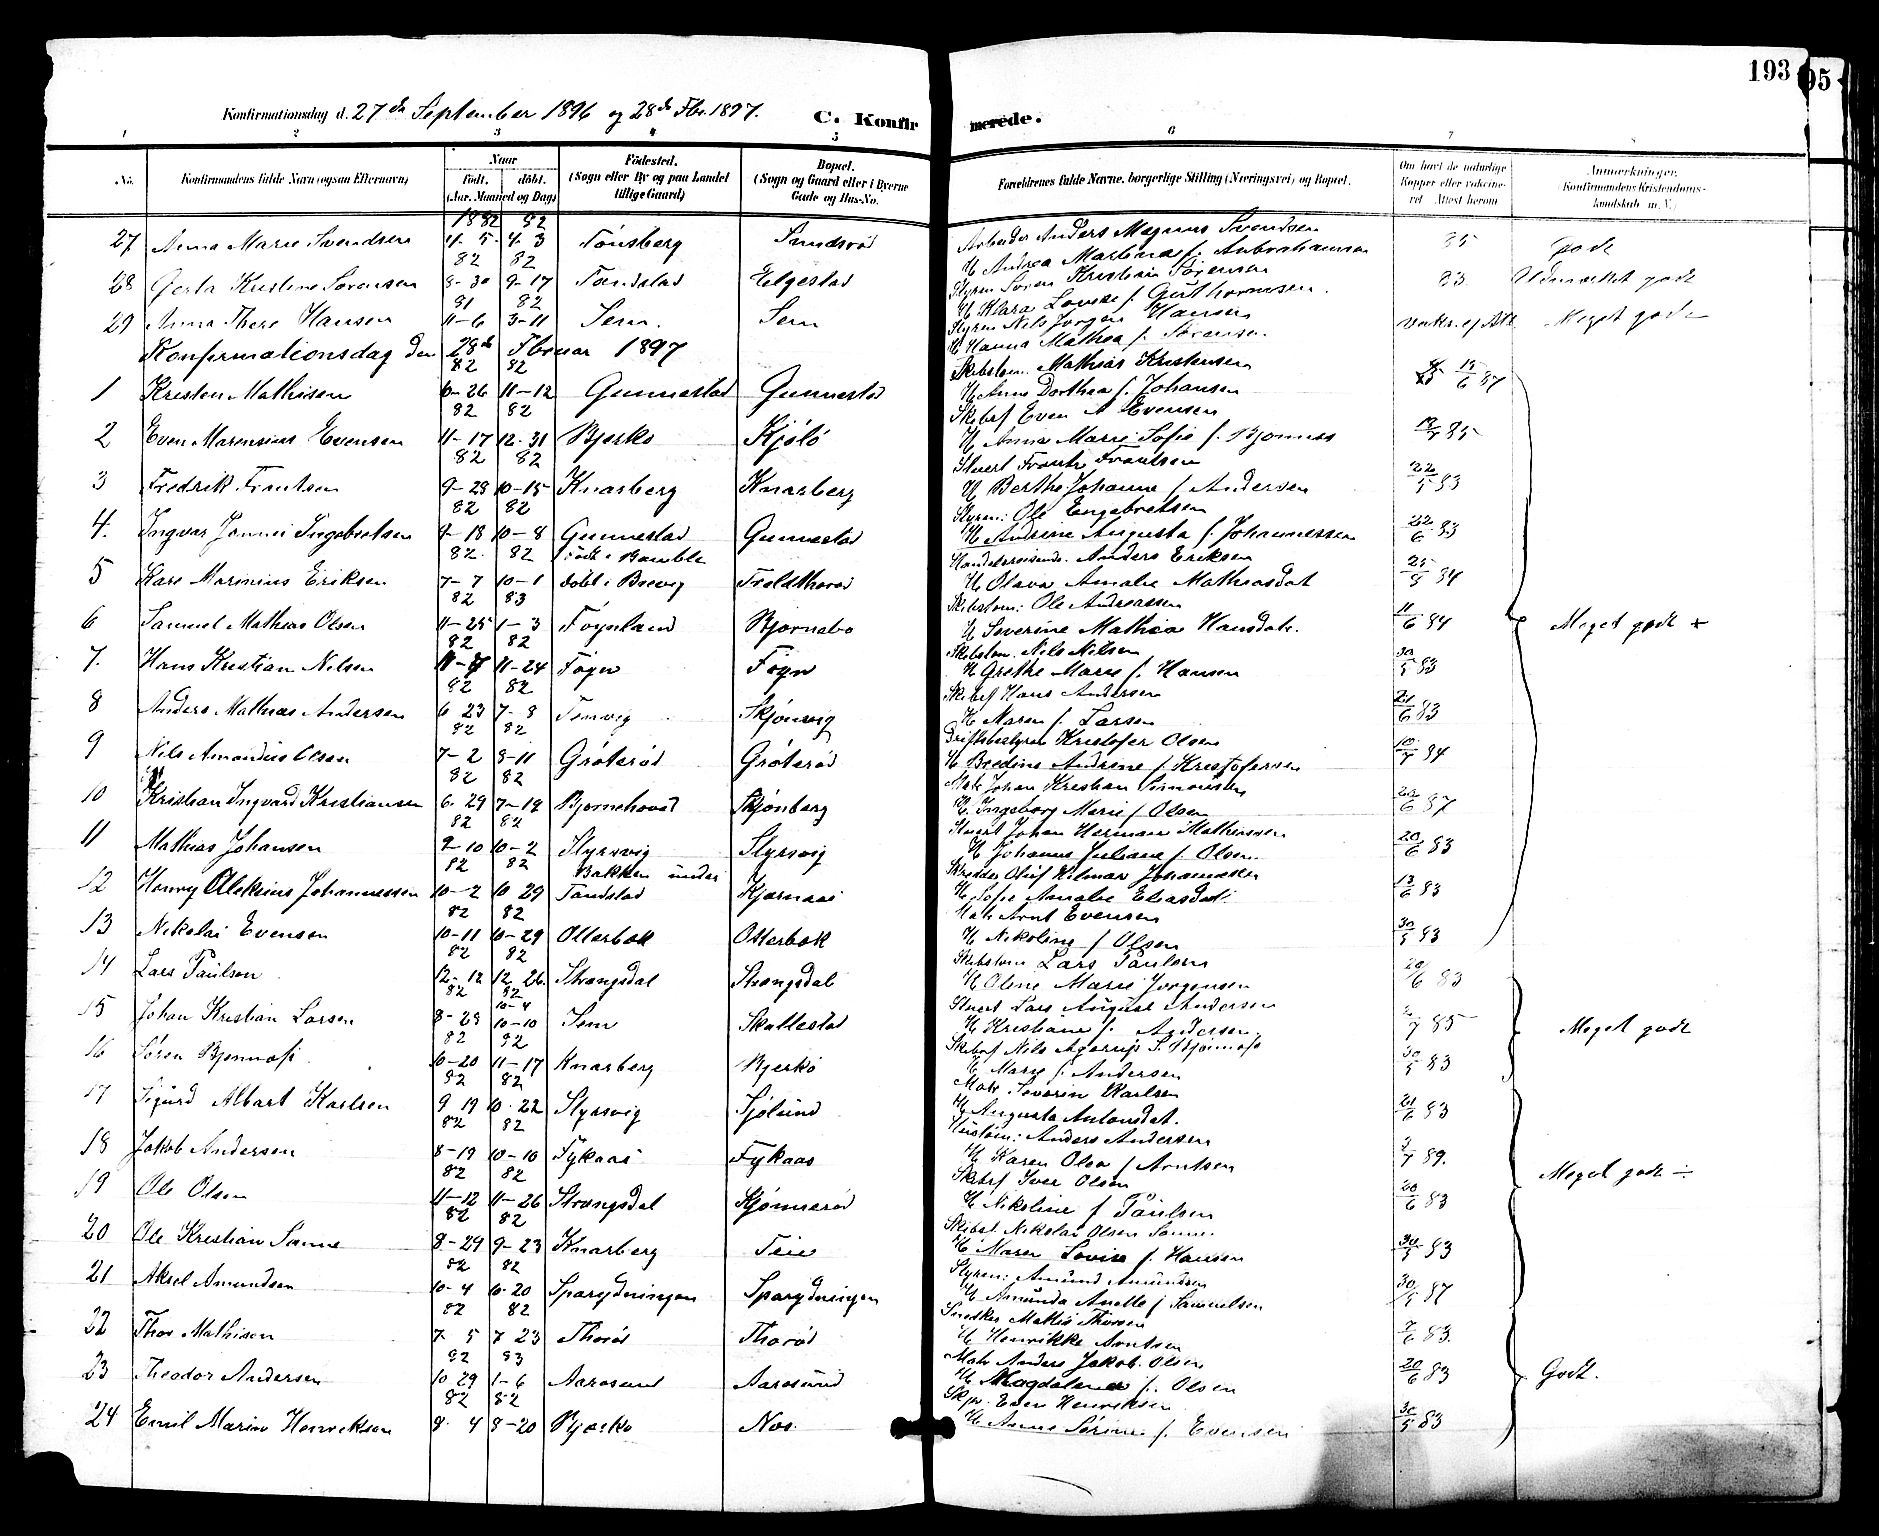 193
95
Konfirmationsdag d. 27de September 1896 og 28de Fbr. 1897.
C. Konfirmerede.
1 2 3 4 5 6 7 8
No.
Konfirmandens fulde Navn (ogsaa Efternavn)
Naar
født. døbt.
(Aar. Maaned og Dag)
Fødested.
(Sogn eller By og paa Landet
tillige Gaard)
Bopæl.
(Sogn og Gaard eller i Byerne
Gade og Hus-No.
Forældrenes fulde Navne, borgerlige Stilling (Næringsvei) og Bopæl.
Om havt de naturlige
Kopper eller vaccine-
ret Attest herom
Anmerkninger.
Konfirmandens Kristendoms-
kundskab m. V.)
1882 82
Arbeider Anders Magnus Svendsen
27 Anna Marie Svendsen 4-5 4-3 Tönsberg Sundsröd H Andrea Martina f. Anbrahamsen 85 Gode
82 82
Styrm Sören Kristian Sörensen
28 Gerda Kristine Sörensen 8-30 9-17 Tandstad Helgestad H Klara Lovise f. Guthormsen. 83 Udmærket godt
81 82
Styrm Nils Jörgen Hansen
29 Anna There Hansen 11-6 3-11 Sem. Sem H Hanna Mathea f. Sörensen. Meget gode
Konfirmationsdag den 28de Februar 1897
82 82
Skibstöm. Mathias Kristensen
1 Kresten Mathisen 6-26 11-12 Gunnestad Gunnestad H Anne Dorthea f. Johansen 15/6 87
82 82
Skibsf Even A Evensen
2 Even Marensius Evensen 11-17 12-31 Bjerkö Kjölö H Anna Marie Sofie f. Bjonnes 85
82 82
Stuert Frants Frantsen
3 Fredrik Frantsen 9-28 10-15 Knarberg Knarberg H Berthe Johanne f Andersen 22/5 83
82 82
Styrm: Ole Engebretsen
4. Ingvar Jonnei Ingebretsen 9-18 10-8 Gunnestad Gunnestad H Andrine Augusta f. Johannessen 22/6 83
82 82 född i Bamble
Handelsreisende. Anders Eriksen
5 Kare Marinius Eriksen 7-7 10-1 döbt i Brevig H Olava Amalie Mathiasdat 25/5 84
82 83
Skibstöm: Ole Andreassen
6 Samuel Mathias Olsen 11-25 1-3 Föynland Bjornebo H Severine Mathea Hansdatr. 11/6 84 Meget godt +
82 82
Skibstöm. Nils Nilsen
7. Hans Kristian Nilsen 11-7 11-24 Föyn Föyn H Grethe Marie f. Hansen 30/5 83
82 82
Skibsf Hans Andersen
8 Anders Mathias Andersen 6 23 7-8 Tomvig Skjönvig H Maren f. Larsen 21/6 83
82 82
Driftsbestyrer Kristofer Olsen
9 Nils Amandus Olsen 7-2 8-11 Gröteröd Gröteröd H Bredine Andrine f. Kristofersen 84
82 82
Mats Johan Kristian Simonsen
10 Kristian Ingvard Kristiansen 6-29 7-12 Bjornehovet Skjönberg H. Ingeborg Marie f Olsen 87
82 82
Stuert Johan Herman Mathiassen
11 Mathias Johansen 9-10 10-2 Styrsvig Styrsvig H Johanne Juliane f. Olsen. 20/6 83
82 82 Bakken under
Skrædder Oluf Hilmar Johannesen
12 Henry Alekius Johannessen 10-2 10 29 Tandstad Kjærnaas H Sofie Amalie Eliasdat 13/6 83
82 82
Mats Arnt Evensen
13 Nikolai Evensen 10-11 10-29 Otterbæk Otterbæk H Nikoline f Olsen 30/5 83
82 82
Skibstöm Lars Paulsen
14 Lars Paulsen 12-12 12 26 Strengsdal Strengsdal H Oline Marie Jorgensen 20/6 83
82 82
10-4
Stuert Lars August Andersen
15 Johan Kristian Larsen 8-28 10-10 Sem Skallestad H Kristiane f. Andersen. 85 Meget godt
82 82
Skibsf Nils Agerup S. Bjönnes
16 Sören Bjönnes. 10-20 11-17 Knarberg Bjerkö H Marie f. Andersen 30/5 83
82 82
Mats Severin Karlsen
17 Sigurd Albart Karlsen 9 19 10-22 Styrsvig Sjölund H Augusta Antonsdat. 20/6 83
82 82
Anders Andersen
18 Jakob Andersen 8-19 10-10 Fykaas Fykaas H Karen Olea f Arntsen 89.
82 82
Skibsf Iver Olsen
19 Ole Olsen 11-12 11-26 Strengsdal Kjönneröd H Nikoline f Paulsen 20/6 83 Meget godt ÷
82 82
Skibst Nikolai Olsen Sanne.
20 Ole Kristian Sanne 8-29 9-23 Knarberg Teie H Maren Lovise f. Hansen 30/5 83
82 82
Styrm: Amund Amundsen
21 Aksel Amundsen 10-4 10-20 Sparydningen Sparydningen H Amunda Anette f Samuelsen 30/5 87
82 82
Snedker Mathis Thorsen
22 Thor Mathisen 7 5 7 23 Thoröd Thoröd H Henrikke Arntsen 7/6 83.
82 83
Mats Anders Jakob Olsen
23 Theodor Andersen 10 29 1-6 Aarosund Aarosund H Magdalena f. Olsen 20/6 83 Godt.
82 82
Skpr. Even Henriksen
24 Emil Marin Henriksen 8-4 8-20 Bjerkö Nes. H Anne Sörine f. Evensen 30/5 83